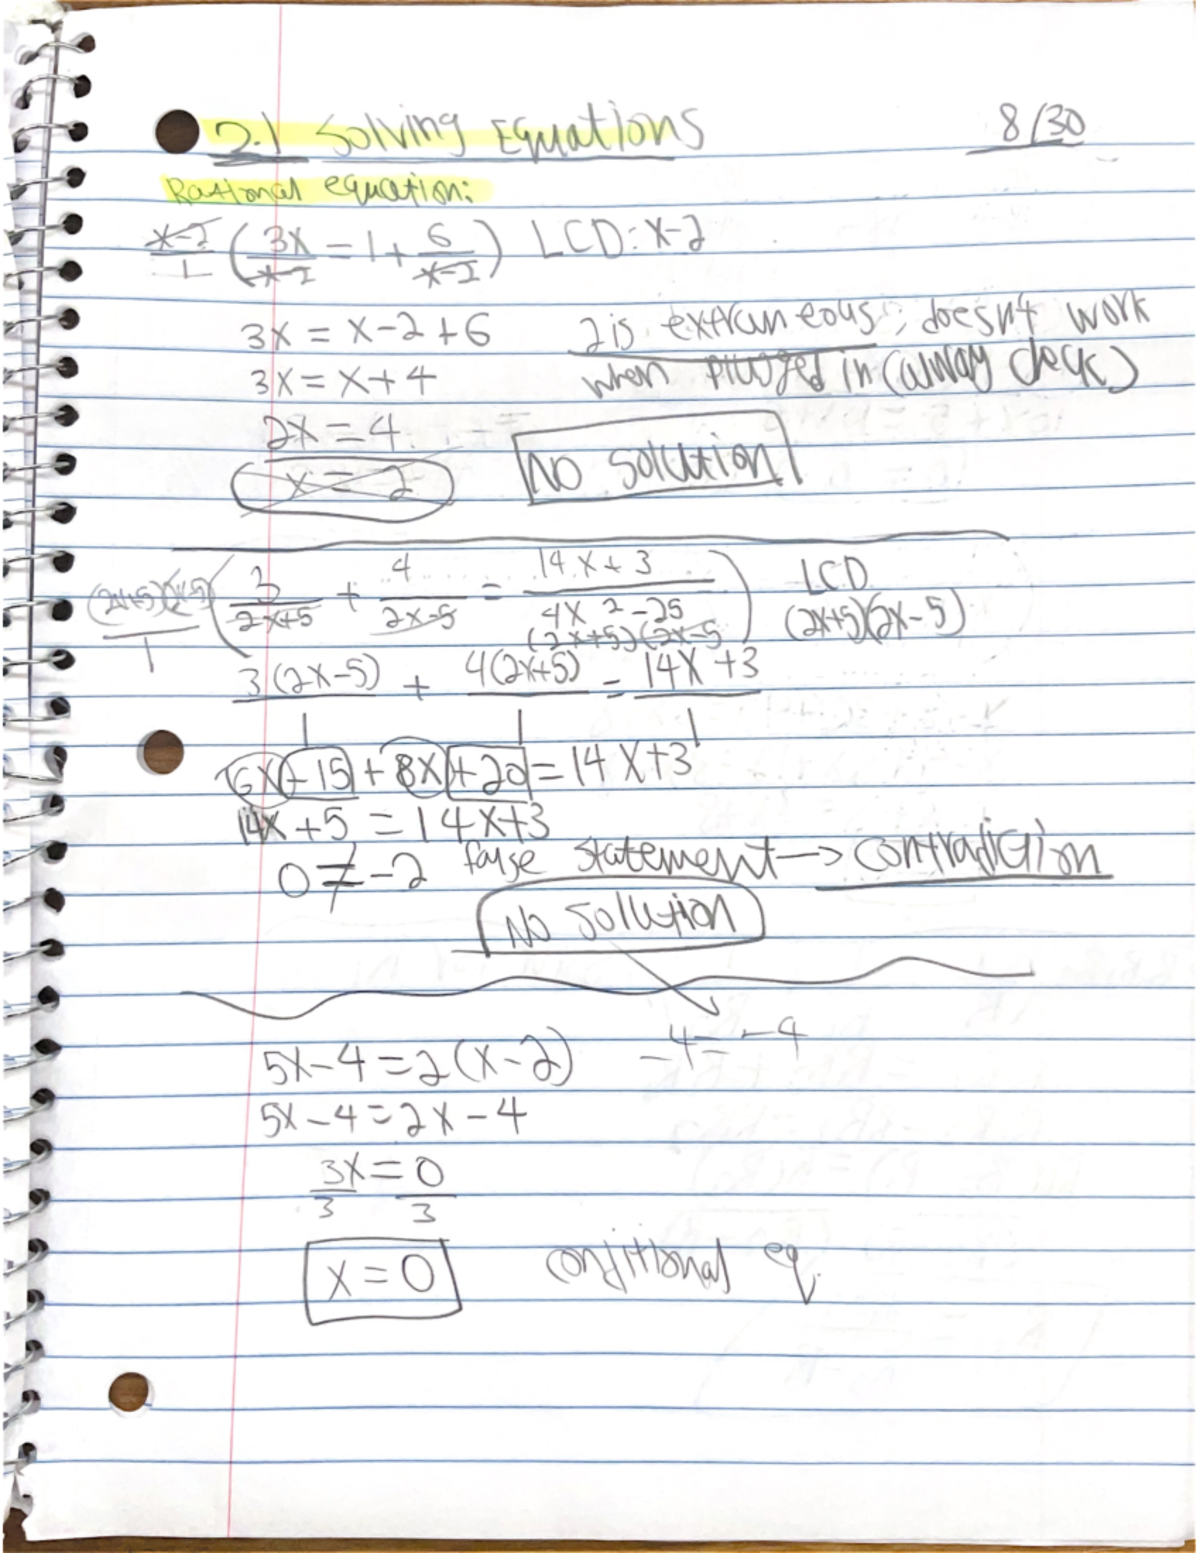 2.1 Solving Equations 8/30
Rational equation:
x-2/1 (3x/x-2 = 1 + 6/x-2) LCD: x-2
3x = x-2+6 2 is extraneous, doesn't work
3x = x+4 when plugged in (alway check)
2x = 4
x = 2 No solution
(2x+5)(x-5)/1 (3/2x+5 + 4/2x-5 = 14x+3/4x²-25) LCD
(2x+5)(2x-5 (2x+5)(2x-5)
3(2x-5)/1 + 4(2x+5)/1 = 14x+3/1
6x-15+8x+20=14x+3
14x+5 = 14x+3
0≠-2 false statement → contradiction
No solution
5x-4=2(x-2) -4=-4
5x-4=2x-4
3x/3=0/3
x=0 conditional eq.